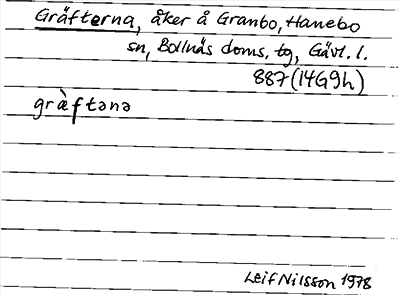 Gräfterna, åker å Granbo, Hanebo
sn, Bollnäs doms. tg, Gävl. l.
887 (14G9h)
grὰftənə
Leif Nilsson 1978